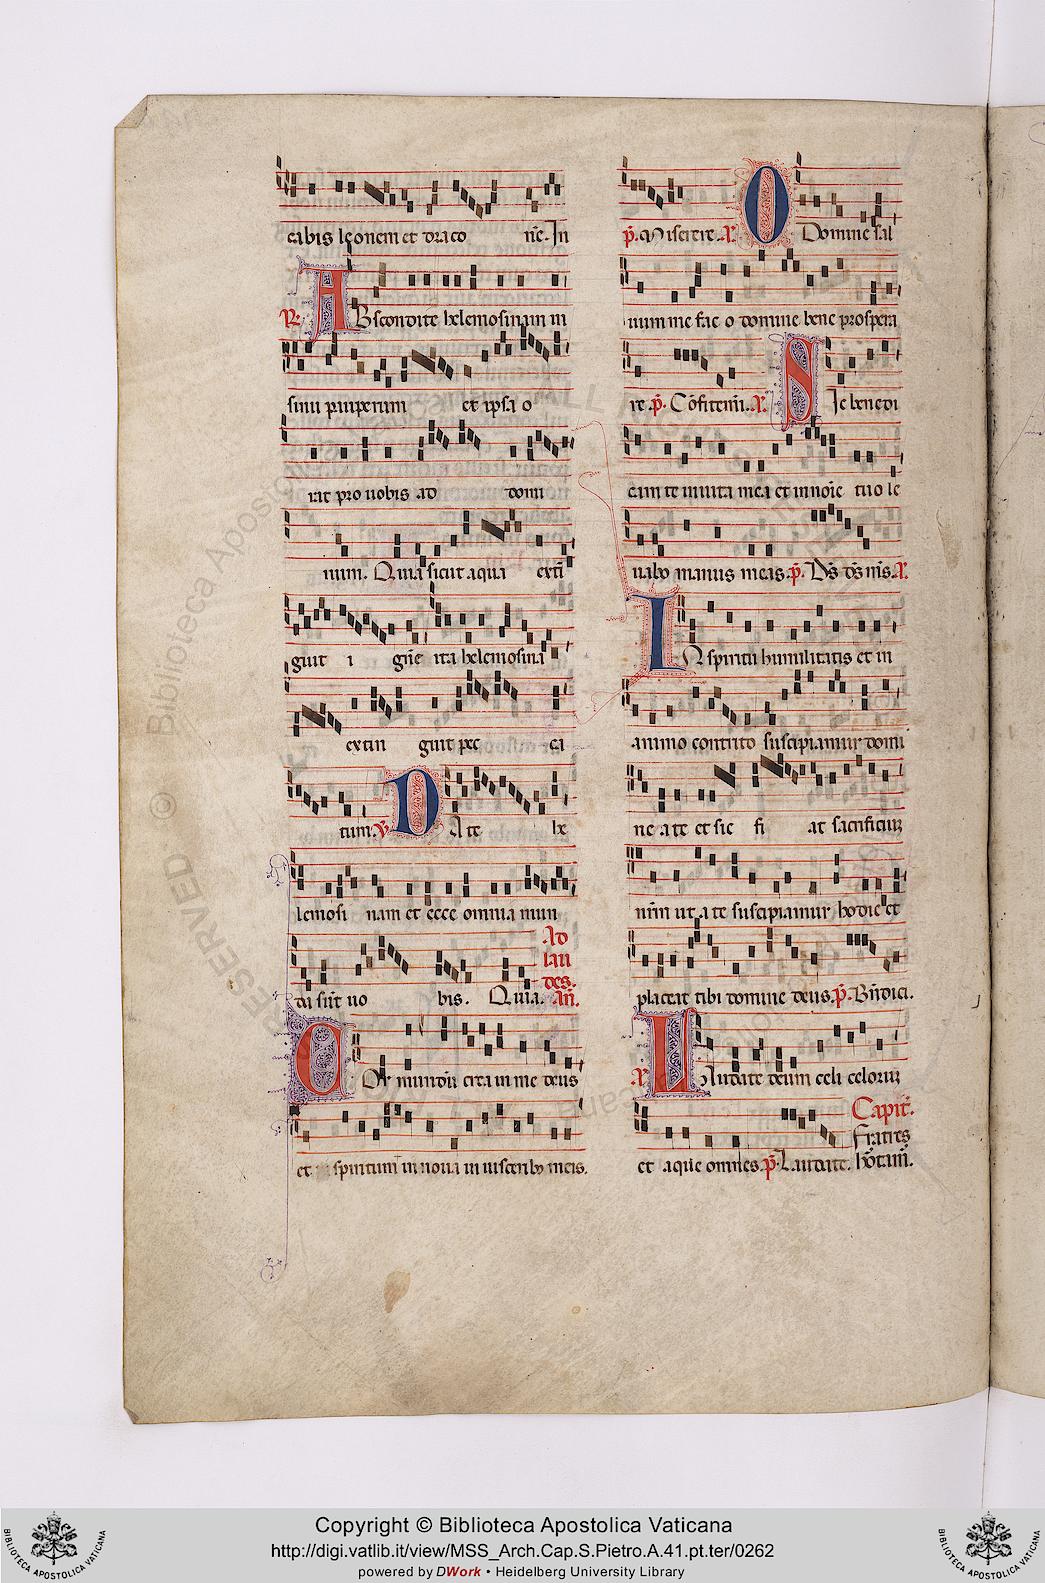 cabis leonem et draco nẽ. In
R. Abscondite helemosinam in
sinu pauperum et ipsa o
rat pro uobis ad domi
num. Quia sicut aqua exti
guit ignẽ ita helemosina
extin guit pec ca
tum. V. Date he
lemosi nam et ecce omnia mun
da sũt uo bis. Quia.
Ad
lau
des.
Añ.
Cor mundũ crea in me deus
et spiritum innoua in uisceribꝫ meis.
p̃. Miserere. A. O Domine sal
uum me fac o domine bene prospera
re. p̃. Cõfitemi. A. Sic benedi
cam te in uita mea et in noĩe tuo le
uabo manus meas. p̃. Ds̃ ds̃ ms̃. A.
In spiritu humilitatis et in
animo contrito suscipiamur domi
ne a te et sic fi at sacrificiuꝫ
nr̃m ut a te suscipiamur hodie et
placeat tibi domine deus. p̃. Bñdici.
A. Laudate deum celi celoruꝫ
et aque omnes. p̃. Laudate.
Capit̃.
Fratres
hortam̃.
© Biblioteca Apostolica Vaticana
RESERVED
BIBLIOTECA APOSTOLICA VATICANA
Copyright © Biblioteca Apostolica Vaticana
http://digi.vatlib.it/view/MSS_Arch.Cap.S.Pietro.A.41.pt.ter/0262
powered by DWork • Heidelberg University Library
BIBLIOTECA APOSTOLICA VATICANA